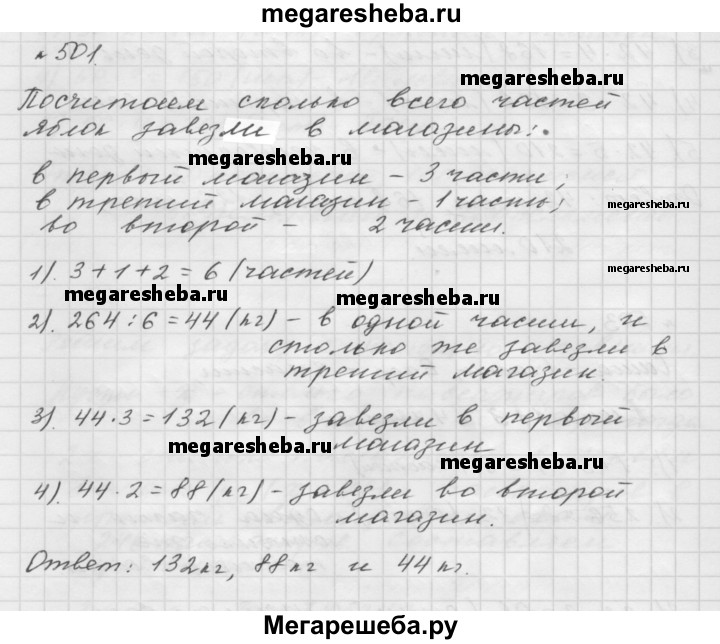 megaresheba.ru
№ 501.
megaresheba.ru
Посчитаем сколько всего частей
яблок завезли в магазины:
megaresheba.ru
в первый магазин – 3 части;
в третий магазин – 1 часть;
megaresheba.ru
во второй – 2 части.
1). 3+1+2=6 (частей)
megaresheba.ru
megaresheba.ru
megaresheba.ru
2). 264:6=44 (кг) – в одной части, и
столько же завезли в
третий магазин.
3). 44·3=132 (кг) – завезли в первый
магазин
megaresheba.ru
megaresheba.ru
4). 44·2=88 (кг) – завезли во второй
магазин.
Ответ: 132кг, 88кг и 44кг.
Мегарешеба.ру